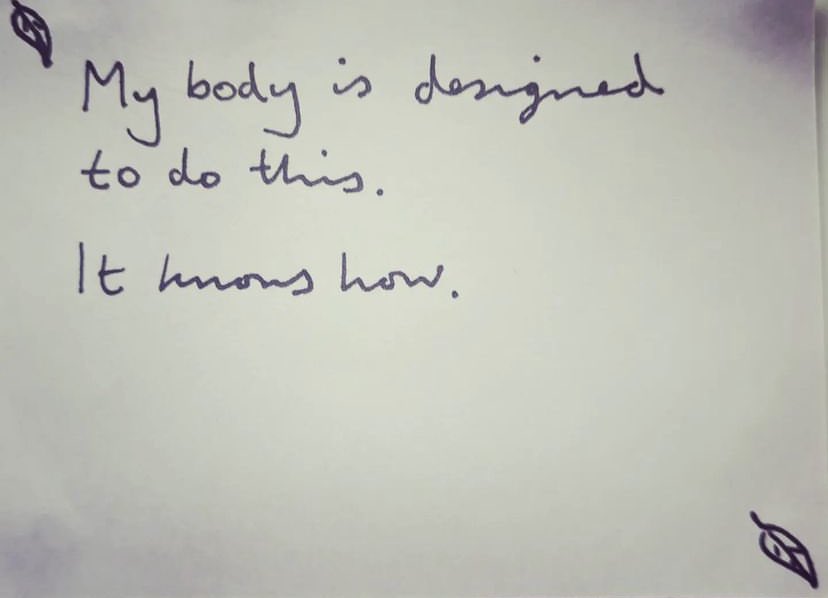 My body is designed
to do this.
It knows how.